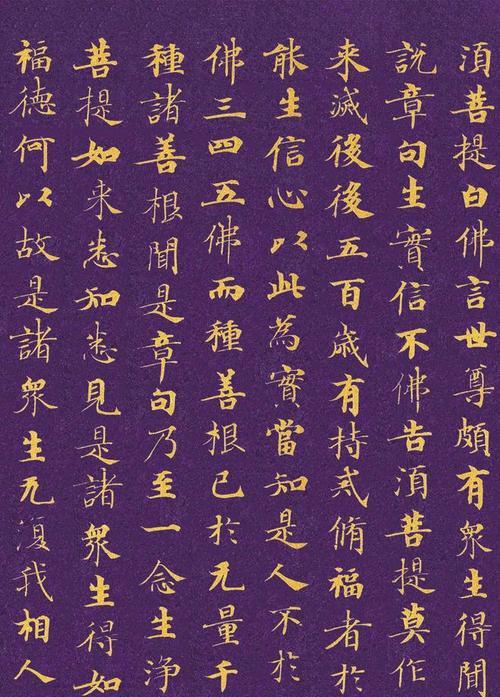 湏菩提白佛言世尊頗有衆生得聞
說章句生實信不佛告湏菩提莫作
来滅後後五百歲有持戒脩福者於
能生信心以此為實當知是人不於
佛三四五佛而種善根已於无量千
種諸善根聞是章句乃至一念生淨
菩提如来悉知悉見是諸衆生得如
福德何以故是諸衆生无復我相人